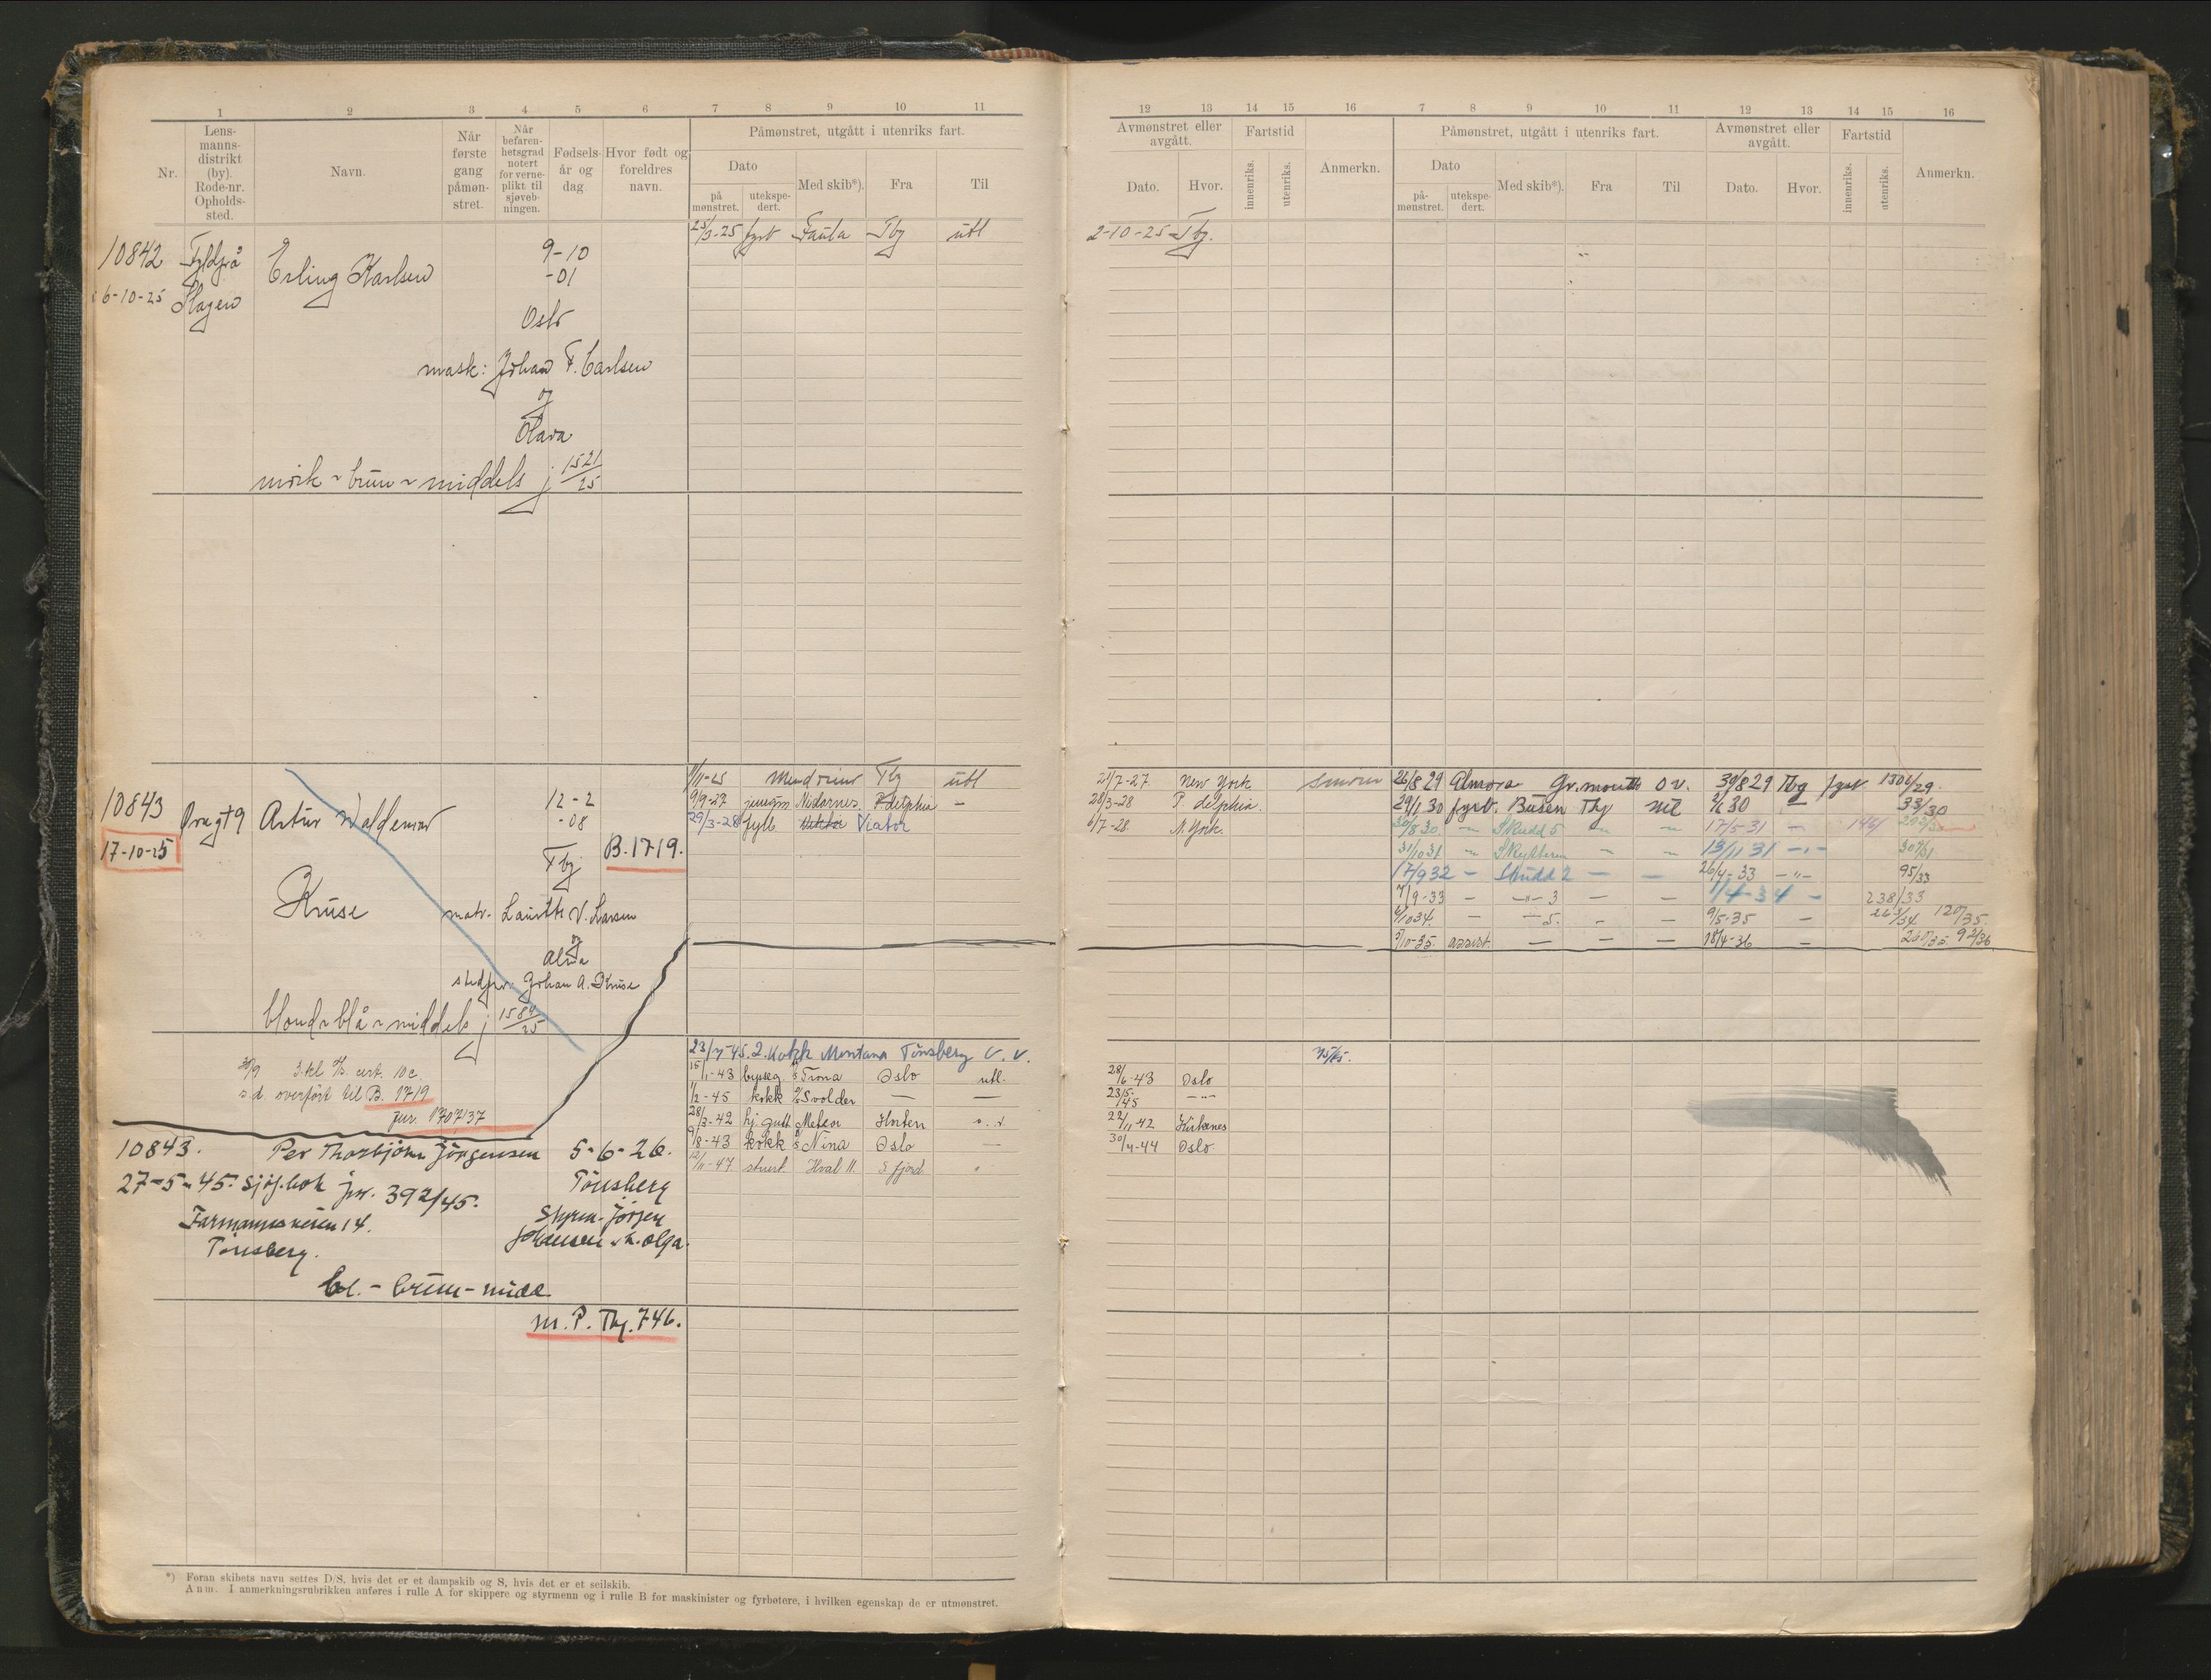 1 2 3 4 5 6 7 8 9 10 11
Nr.
Lens-
manns-
distrikt
(by).
Rode-nr.
Opholds-
sted.
Navn.
Når
første
gang
påmøn-
stret.
Når
befaren-
hetsgrad
notert
for verne-
plikt til
sjøveb-
ningen.
Fødsels-
år og
dag.
Hvor født og
foreldres
navn.
Påmønstret, utgått i utenriks fart.
Dato
på
mønstret.
utekspe-
dert.
Med skib*).
Fra
Til
10842
6-10-25
Slagen
Erling Karlsen
9-10
-01
Oslo
mask: Johan F. Carlsen
og
Klara
mørk - brun - middels j 1521/25
25/3-25 fyrb Tbg utl
10843
17-10-25
Artur Waldemar
Kruse
12-2
-08
Tbg
B.1719.
matr. Laurits V. Larsen
og
Alma
stedfar: Johan A. Kruse
blond - blå - middels j 1584/25
30/9 3.kl cert. 10c
s.d. overført til B. 1719
jnr. 1707/37
11-25 Tbg utl
9/9-27 Nidarnes P.delphia -
29/3-28 fyrb Viator
10843. Per Thorbjörn Jörgensen 5-6-26.
27-5-45. sjöf.bok jnr. 392/45.
Farmannsveien 14.
Tönsberg.
Tönsberg
Styrm. Jörgen
Johansen Olga.
bl. - brun - midd.
m. P. Tbg. 746.
23/7-45. 2. kokk Montana Tönsberg v. v.
15/1-43 Trona Oslo utl.
1/2-45 kokk Svolder — —
28/3-42 hj. gutt Meteor Horten
9/8-43 kokk Nina Oslo —
12/11-47 stuert Hval II S fjord "
*) Foran skibets navn settes D/S, hvis det er et dampskib og S, hvis det er et seilskib.
Anm. I anmerkningsrubrikken anføres i rulle A for skippere og styrmenn og i rulle B for maskinister og fyrbøtere, i hvilken egenskap de er utmønstret.
12 13 14 15 16 7 8 9 10 11 12 13 14 15 16
Avmønstret eller
avgått.
Dato.
Hvor.
Fartstid
innenriks.
utenriks.
Anmerkn.
Påmønstret, utgått i utenriks fart.
Dato
på-
mønstret.
utekspe-
dert.
Med skib*).
Fra
Til
Avmønstret eller
avgått.
Dato.
Hvor.
Fartstid
innenriks.
utenriks.
Anmerkn.
2-10-25 Tbg.
21/7-27 New York
28/3-28 P. delphia.
6/7-28. N. York.
26/8 29 Almora Gr.mouth o v. 30/8 29 Tbg fyrb 1302/29.
29/1 30 fyrb. Busen Tbg 30 — 33/30
30/8 30. — Skudd 5 — — 17/5-31 —
31/10 31 — Skytteren — — 13/11 31 -"-
17/9 32 — Skudd 2 — — 26/4-33 -"- 95/33
7/9-33 — -"- 3 — — 1/4-34 — 238/33
10 34. — — 5. — — 9/5-35 — 120/35.
10-35. assist. — — — 18/4-36 — 92/36.
75/45.
28/6-43 Oslo
23/5-/45 -"-
22/11-42 Kirkenes
30/4-44 Oslo